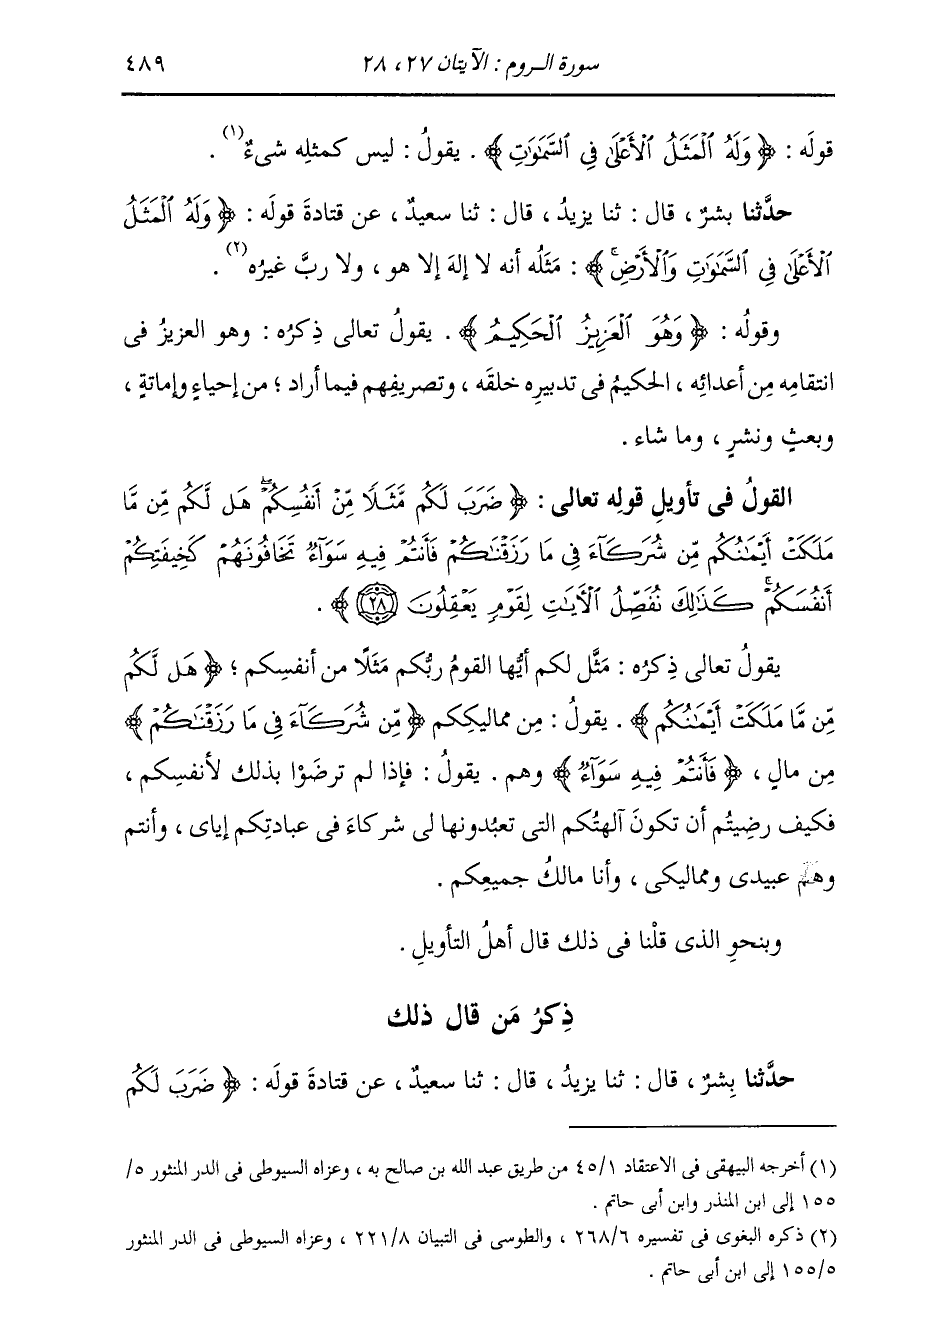 سورة الـروم : الآيتان ٢٧ ، ٢٨
٤٨٩
قولَه : ﴿ وَلَهُ ٱلْمَثَلُ ٱلْأَعْلَىٰ فِى ٱلسَّمَٰوَٰتِ ﴾ . يقولُ : ليس كمثلِه شىءٌ (١) .
حدَّثنا بشرٌ ، قال : ثنا يزيدُ ، قال : ثنا سعيدٌ ، عن قتادةَ قولَه : ﴿ وَلَهُ ٱلْمَثَلُ
ٱلْأَعْلَىٰ فِى ٱلسَّمَٰوَٰتِ وَٱلْأَرْضِۚ ﴾ : مَثَلُه أنه لا إلهَ إلا هو ، ولا ربَّ غيرُه (٢) .
وقولُه : ﴿ وَهُوَ ٱلْعَزِيزُ ٱلْحَكِيمُ ﴾ . يقولُ تعالى ذِكرُه : وهو العزيزُ فى
انتقامِه مِن أعدائِه ، الحكيمُ فى تدبيرِه خلقَه ، وتصريفِهم فيما أراد ؛ من إحياءٍ وإماتةٍ ،
وبعثٍ ونشرٍ ، وما شاء .
القولُ فى تأويلِ قولِه تعالى : ﴿ ضَرَبَ لَكُم مَّثَلًا مِّنْ أَنفُسِكُمْۖ هَل لَّكُم مِّن مَّا
مَلَكَتْ أَيْمَٰنُكُم مِّن شُرَكَآءَ فِى مَا رَزَقْنَٰكُمْ فَأَنتُمْ فِيهِ سَوَآءٌ تَخَافُونَهُمْ كَخِيفَتِكُمْ
أَنفُسَكُمْۚ كَذَٰلِكَ نُفَصِّلُ ٱلْءَايَٰتِ لِقَوْمٍ يَعْقِلُونَ ٢٨ ﴾ .
يقولُ تعالى ذِكرُه : مَثَّل لكم أيُّها القومُ ربُّكم مَثَلًا من أنفسِكم ؛ ﴿ هَل لَّكُم
مِّن مَّا مَلَكَتْ أَيْمَٰنُكُم ﴾ . يقولُ : مِن مماليكِكم ﴿ مِّن شُرَكَآءَ فِى مَا رَزَقْنَٰكُمْ ﴾
مِن مالٍ ، ﴿ فَأَنتُمْ فِيهِ سَوَآءٌ ﴾ وهم . يقولُ : فإذا لم ترضَوْا بذلك لأنفسِكم ،
فكيف رضِيتُم أن تكونَ آلهتُكم التى تعبُدونها لى شركاءَ فى عبادتِكم إياى ، وأنتم
وهم عبيدى ومماليكى ، وأنا مالكُ جميعِكم .
وبنحوِ الذى قلْنا فى ذلك قال أهلُ التأويلِ .
ذِكرُ مَن قال ذلك
حدَّثنا بِشرٌ ، قال : ثنا يزيدُ ، قال : ثنا سعيدٌ ، عن قتادةَ قولَه : ﴿ ضَرَبَ لَكُم
(١) أخرجه البيهقى فى الاعتقاد ٤٥/١ من طريق عبد الله بن صالح به ، وعزاه السيوطى فى الدر المنثور ٥/
١٥٥ إلى ابن المنذر وابن أبى حاتم .
(٢) ذكره البغوى فى تفسيره ٢٦٨/٦ ، والطوسى فى التبيان ٢٢١/٨ ، وعزاه السيوطى فى الدر المنثور
١٥٥/٥ إلى ابن أبى حاتم .